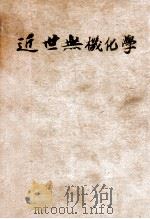 近世無機化學